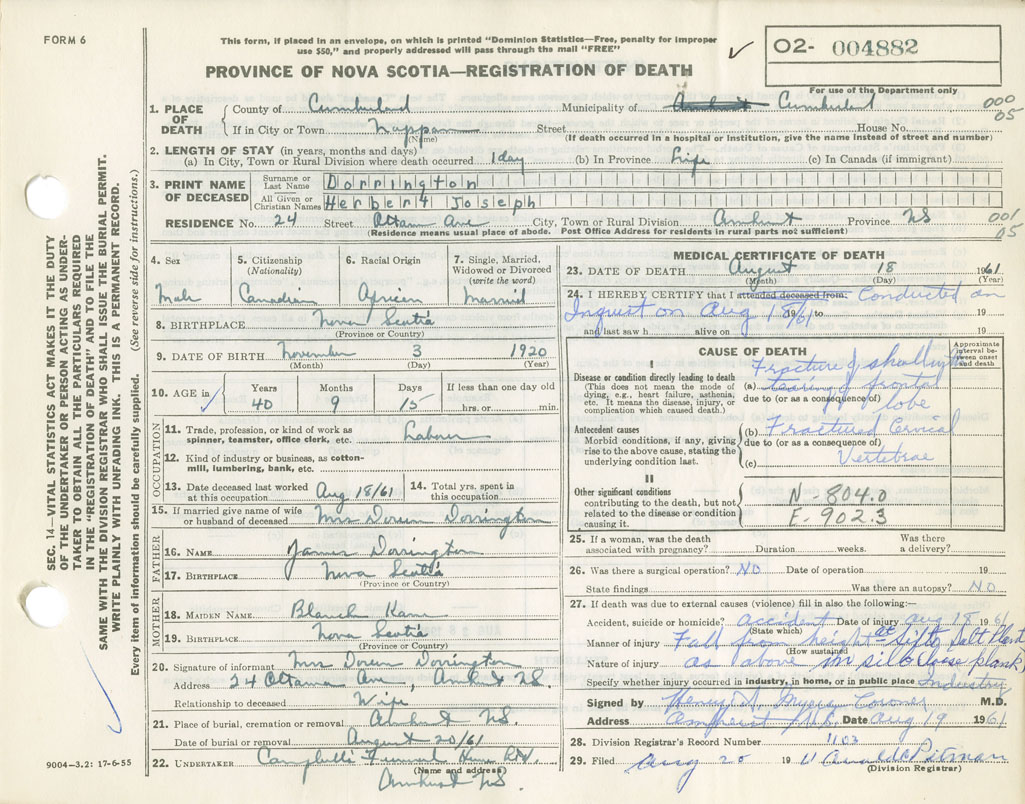 FORM 6
This form, if placed in an envelope, on which is printed "Dominion Statistics—Free, penalty for improper
use $50," and properly addressed will pass through the mail "FREE"
✓
02- 004882
PROVINCE OF NOVA SCOTIA—REGISTRATION OF DEATH
For use of the Department only
1. PLACE OF DEATH County of Cumberland Municipality of Amherst Cumberland 000 05
If in City or Town Nappan Street House No.
(Name) (If death occurred in a hospital or institution, give the name instead of street and number)
2. LENGTH OF STAY (in years, months and days)
(a) In City, Town or Rural Division where death occurred 1 day (b) In Province Life (c) In Canada (if immigrant)
3. PRINT NAME OF DECEASED Surname or Last Name Dorrington
All Given or Christian Names Herbert Joseph
RESIDENCE No. 24 Street Ottawa Ave City, Town or Rural Division Amherst Province NS 001 05
(Residence means usual place of abode. Post Office Address for residents in rural parts not sufficient)
4. Sex Male
5. Citizenship (Nationality) Canadian
6. Racial Origin African
7. Single, Married, Widowed or Divorced (write the word) Married
8. BIRTHPLACE Nova Scotia
(Province or Country)
9. DATE OF BIRTH November 3 1920
(Month) (Day) (Year)
10. AGE in ✓ Years 40 Months 9 Days 15 If less than one day old hrs. or min.
OCCUPATION
11. Trade, profession, or kind of work as spinner, teamster, office clerk, etc. Labour
12. Kind of industry or business, as cotton-mill, lumbering, bank, etc.
13. Date deceased last worked at this occupation Aug 18/61
14. Total yrs. spent in this occupation
15. If married give name of wife or husband of deceased Mrs Doreen Dorrington
FATHER
16. NAME James Dorrington
17. BIRTHPLACE Nova Scotia
(Province or Country)
MOTHER
18. MAIDEN NAME Blanch
19. BIRTHPLACE Nova Scotia
(Province or Country)
20. Signature of informant Mrs Doreen Dorrington
Address 24 Ottawa Ave, Amherst NS.
Relationship to deceased Wife
21. Place of burial, cremation or removal Amherst NS.
Date of burial or removal August 20/61
22. UNDERTAKER Campbell's Funeral Home
(Name and address)
Amherst NS.
MEDICAL CERTIFICATE OF DEATH
23. DATE OF DEATH August 18 1961
(Month) (Day) (Year)
24. I HEREBY CERTIFY that I attended deceased from: Conducted an
Inquest on Aug 18/61 19 to 19
and last saw h alive on 19
CAUSE OF DEATH
Approximate interval between onset and death
I
Disease or condition directly leading to death
(This does not mean the mode of dying, e.g., heart failure, asthenia, etc. It means the disease, injury, or complication which caused death.)
Fracture of skull with
(a) tearing of frontal
due to (or as a consequence of)
lobe
Antecedent causes
Morbid conditions, if any, giving rise to the above cause, stating the underlying condition last.
(b) Fractured Cervical
due to (or as a consequence of)
(c) Vertebrae
II
Other significant conditions
contributing to the death, but not related to the disease or condition causing it.
N-804.0
E-902.3
25. If a woman, was the death associated with pregnancy? Duration weeks. Was there a delivery?
26. Was there a surgical operation? NO Date of operation 19
State findings Was there an autopsy? NO
27. If death was due to external causes (violence) fill in also the following:—
Accident, suicide or homicide? accident Date of injury aug 18 1961
(State which)
Manner of injury Fall from height at Sifto Salt Plant
(How sustained)
Nature of injury as above in silo (loose plank)
Specify whether injury occurred in industry, in home, or in public place Industry
Signed by Henry Myers Coroner M.D.
Address Amherst N.S. Date Aug 19 1961
28. Division Registrar's Record Number 1103
29. Filed Aug 20 19 61 Pitman
(Division Registrar)
SEC. 14—VITAL STATISTICS ACT MAKES IT THE DUTY
OF THE UNDERTAKER OR PERSON ACTING AS UNDER-
TAKER TO OBTAIN ALL THE PARTICULARS REQUIRED
IN THE "REGISTRATION OF DEATH" AND TO FILE THE
SAME WITH THE DIVISION REGISTRAR WHO SHALL ISSUE THE BURIAL PERMIT.
WRITE PLAINLY WITH UNFADING INK. THIS IS A PERMANENT RECORD.
Every item of information should be carefully supplied. (See reverse side for instructions.)
9004-3.2: 17-6-55